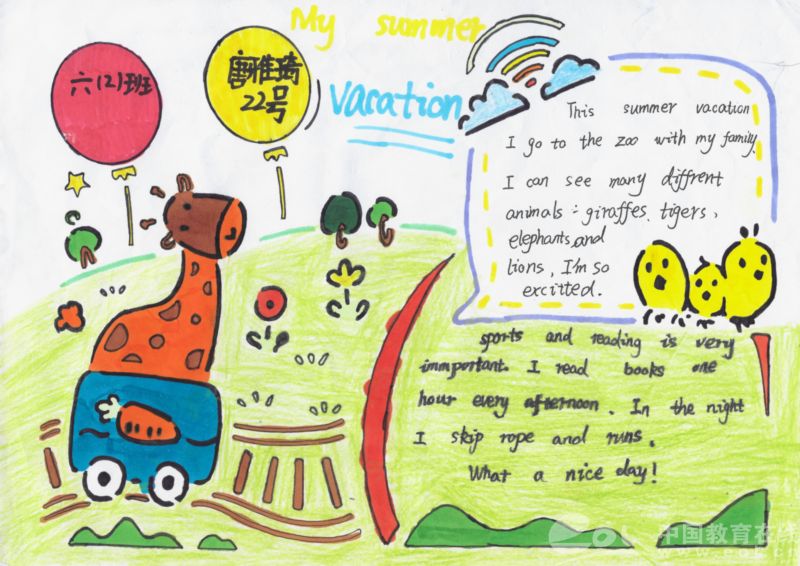 My summer
vacation
六(2)班
唐雅琦
22号
This summer vacation
I go to the zoo with my family.
I can see many diffrent
animals: giraffes、tigers,
elephants and
lions, I'm so
excitted.
sports and reading is very
immportant. I read books one
hour every afternoon. In the night
I skip rope and runs.
What a nice day!
eol 中国教育在线
www.eol.cn